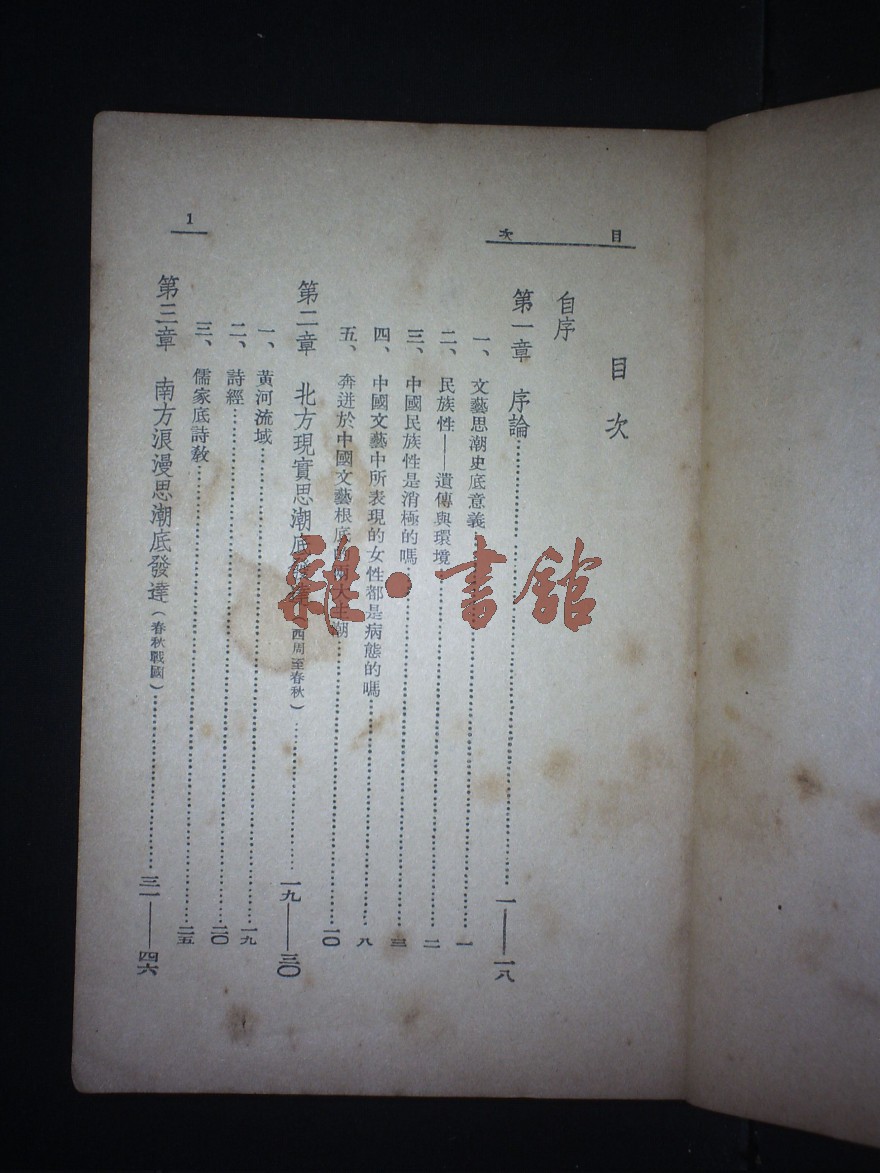 目次
1
目次
自序
第一章 序論……一——一八
一、文藝思潮史底意義……一
二、民族性——遺傳與環境……二
三、中國民族性是消極的嗎……三
四、中國文藝中所表現的女性都是病態的嗎……八
五、奔迸於中國文藝根底的兩大主潮……一〇
第二章 北方現實思潮底發達（西周至春秋）……一九——三〇
一、黃河流域……一九
二、詩經……二〇
三、儒家底詩教……二五
第三章 南方浪漫思潮底發達（春秋戰國）……三一——四六
雜·書館